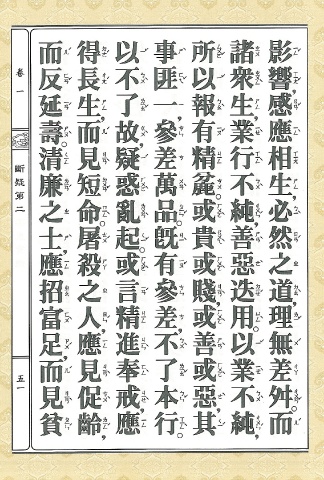 影響感應相生必然之道理無差舛。而
諸衆生業行不純善惡迭用以業不純,
所以報有精麤。或貴或賤或善或惡其
事匪一參差萬品。既有參差不了本行。
以不了故疑惑亂起。或言精進奉戒應
得長生而見短命。屠殺之人應見促齡,
而反延壽。清廉之士應招富足,而見貧
卷一
斷疑第二
五一